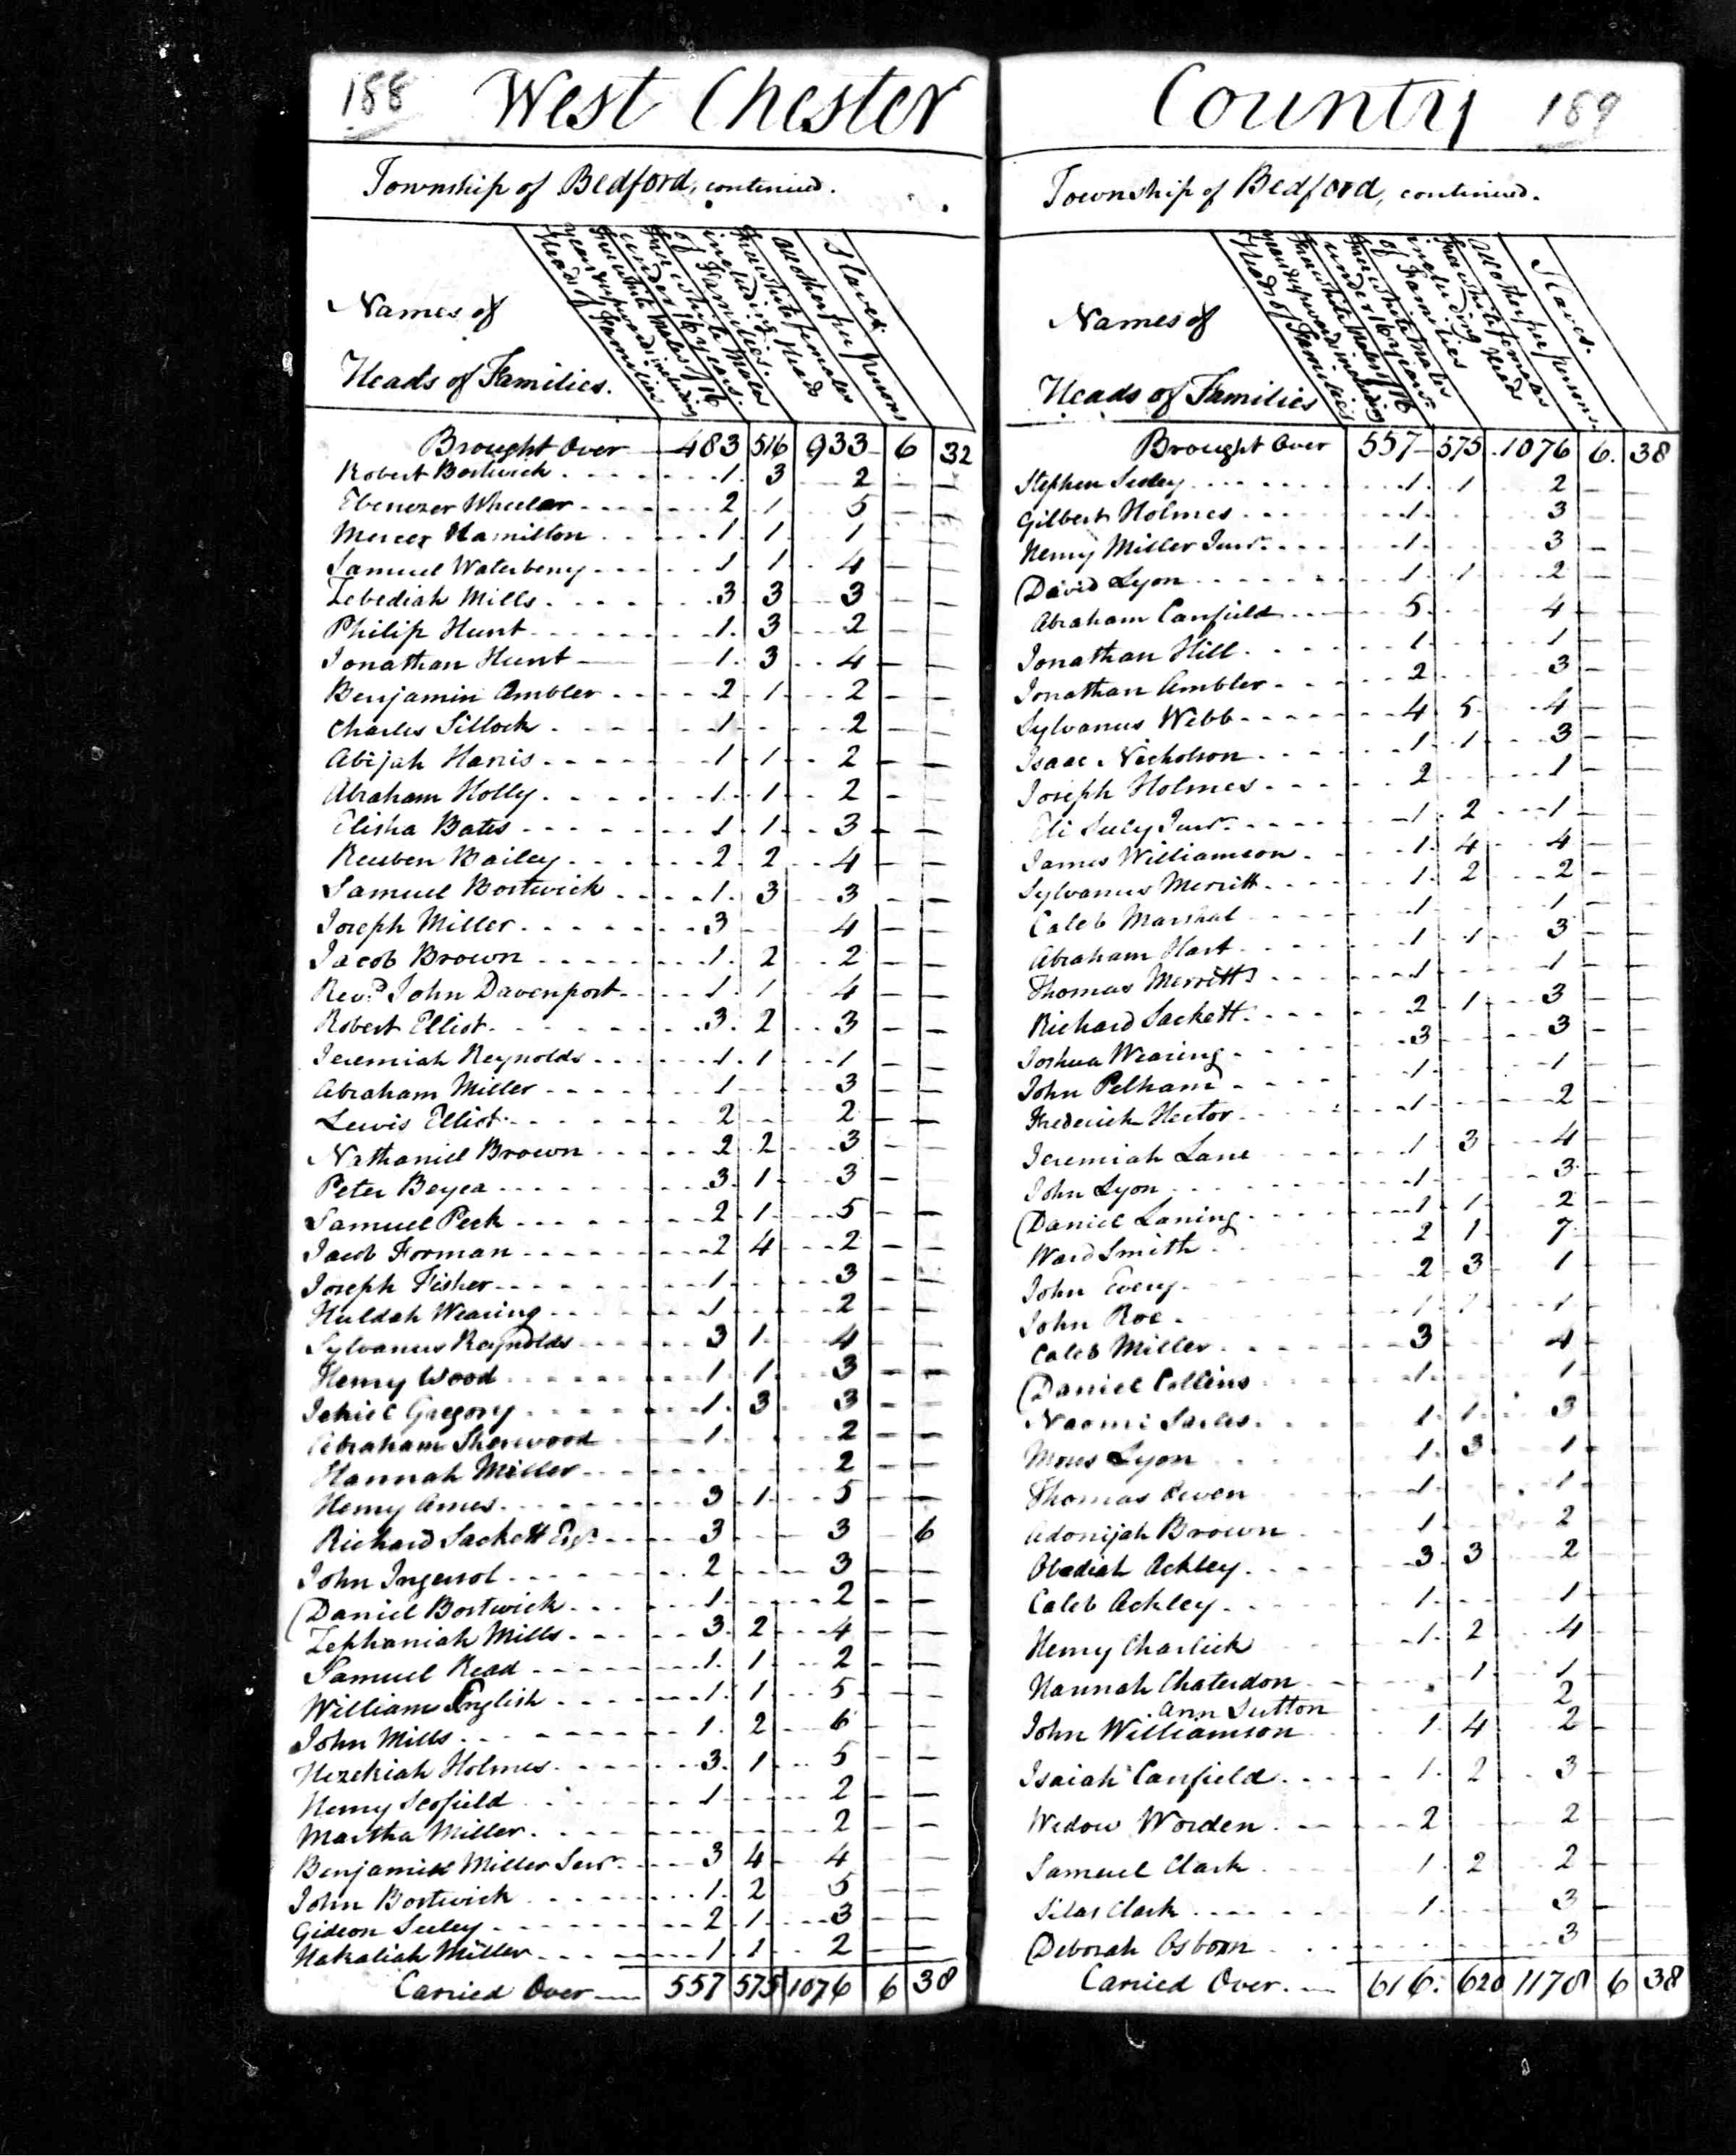 188 West Chester
Township of Bedford, continued.
Names of
Heads of Families.
Free white Males of 16 years & upwards including Heads of Families
Free white Males under 16 years.
Free white females including Heads of Families.
All other free persons
Slaves.
Brought Over 483 516 933 6 32
Robert Bostwick 1 3 2 — —
Ebenezer Wheeler 2 1 5 — —
Mercer Hamilton 1 1 1 — —
Samuel Waterberry 1 1 4 — —
Zebediah Mills 3 3 3 — —
Philip Hunt 1 3 2 — —
Jonathan Hunt 1 3 4 — —
Benjamin Ambler 2 1 2 — —
Charles Sillock 1 2 — —
Abijah Harris 1 1 2 — —
Abraham Holly 1 1 2 — —
Elisha Bates 1 1 3 — —
Reuben Bailey 2 2 4 — —
Samuel Bostwick 1 3 3 — —
Joseph Miller 3 4 — —
Jacob Brown 1 2 2 — —
Revd. John Davenport 1 1 4 — —
Robert Elliot 3 2 3 — —
Jeremiah Reynolds 1 1 1 — —
Abraham Miller 1 3 — —
Lewis Elliot 2 2 — —
Nathaniel Brown 2 2 3 — —
Peter Beyea 3 1 3 — —
Samuel Peck 2 1 5 — —
Jacob Forman 2 4 2 — —
Joseph Fisher 1 3 — —
Huldah Wearing 1 2 — —
Sylvanus Reynolds 3 1 4 — —
Henry Wood 1 1 3 — —
Jehiel Gregory 1 3 3 — —
Abraham Sherwood 1 2 — —
Hannah Miller 2 — —
Henry Ames 3 1 5 — —
Richard Sackett Esqr. 3 3 — 6
John Ingersol 2 3 — —
Daniel Bostwick 1 2 — —
Zephaniah Mills 3 2 4 — —
Samuel Read 1 1 2 — —
William English 1 1 5 — —
John Mills 1 2 6 — —
Hezekiah Holmes 3 1 5 — —
Henry Scofield 1 2 — —
Martha Miller 2 — —
Benjamin Miller Junr. 3 4 4 — —
John Bostwick 1 2 5 — —
Gideon Seeley 2 1 3 — —
Hakaliah Miller 1 1 2 — —
Carried Over 557 575 1076 6 38
County 189
Township of Bedford, continued.
Names of
Heads of Families
Free white Males of 16 years & upwards including Heads of Families
Free white Males under 16 years
Free white females including Heads of Families
All other free persons
Slaves.
Brought Over 557 575 1076 6 38
Stephen Seeley 1 1 2 — —
Gilbert Holmes 1 3 — —
Henry Miller Junr. 1 3 — —
David Lyon 1 1 2 — —
Abraham Canfield 5 4 — —
Jonathan Hill 1 1 — —
Jonathan Ambler 2 3 — —
Sylvanus Webb 4 5 4 — —
Isaac Nicholson 1 1 3 — —
Joseph Holmes 2 1 — —
Eli Seely Junr. 1 2 1 — —
James Williamson 1 4 4 — —
Sylvanus Merritt 1 2 2 — —
Caleb Marshal 1 1 — —
Abraham Hart 1 1 3 — —
Thomas Merritt 1 1 — —
Richard Sackett 2 1 3 — —
Joshua Wearing 3 3 — —
John Pelham 1 1 — —
Frederick Hector 1 2 — —
Jeremiah Lane 1 3 4 — —
John Lyon 1 3 — —
Daniel Laning 1 1 2 — —
Ward Smith 2 1 7 — —
John Every 2 3 1 — —
John Roe 1 1 1 — —
Caleb Miller 3 4 — —
Daniel Collins 1 1 — —
Naomi Sarles 1 1 3 — —
Moses Lyon 1 3 1 — —
Thomas Owen 1 1 — —
Adonijah Brown 1 2 — —
Obadiah Ackley 3 3 2 — —
Caleb Ackley 1 1 — —
Henry Charlick 1 2 4 — —
Hannah Chaterdon 1 1 — —
Ann Sutton 2
John Williamson 1 4 2 — —
Isaiah Canfield 1 2 3 — —
Widow Worden 2 2 — —
Samuel Clark 1 2 2 — —
Silas Clark 1 3 — —
Deborah Osborn 3 — —
Carried Over 616 620 1178 6 38